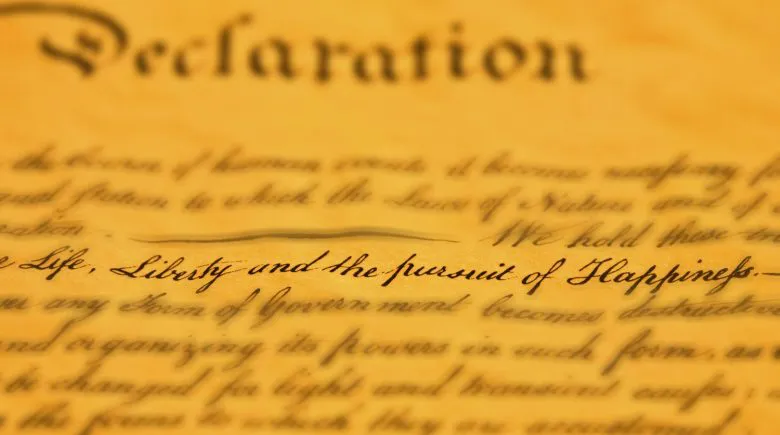 Declaration
the Course of human events it becomes necessary f
and station to which the Laws of Nature and of
ration. We hold these
e Life, Liberty and the pursuit of Happiness.—
any Form of Government becomes destructive
and organizing its powers in such form, as
be changed for light and transient causes;
the forms to which they are accustomed